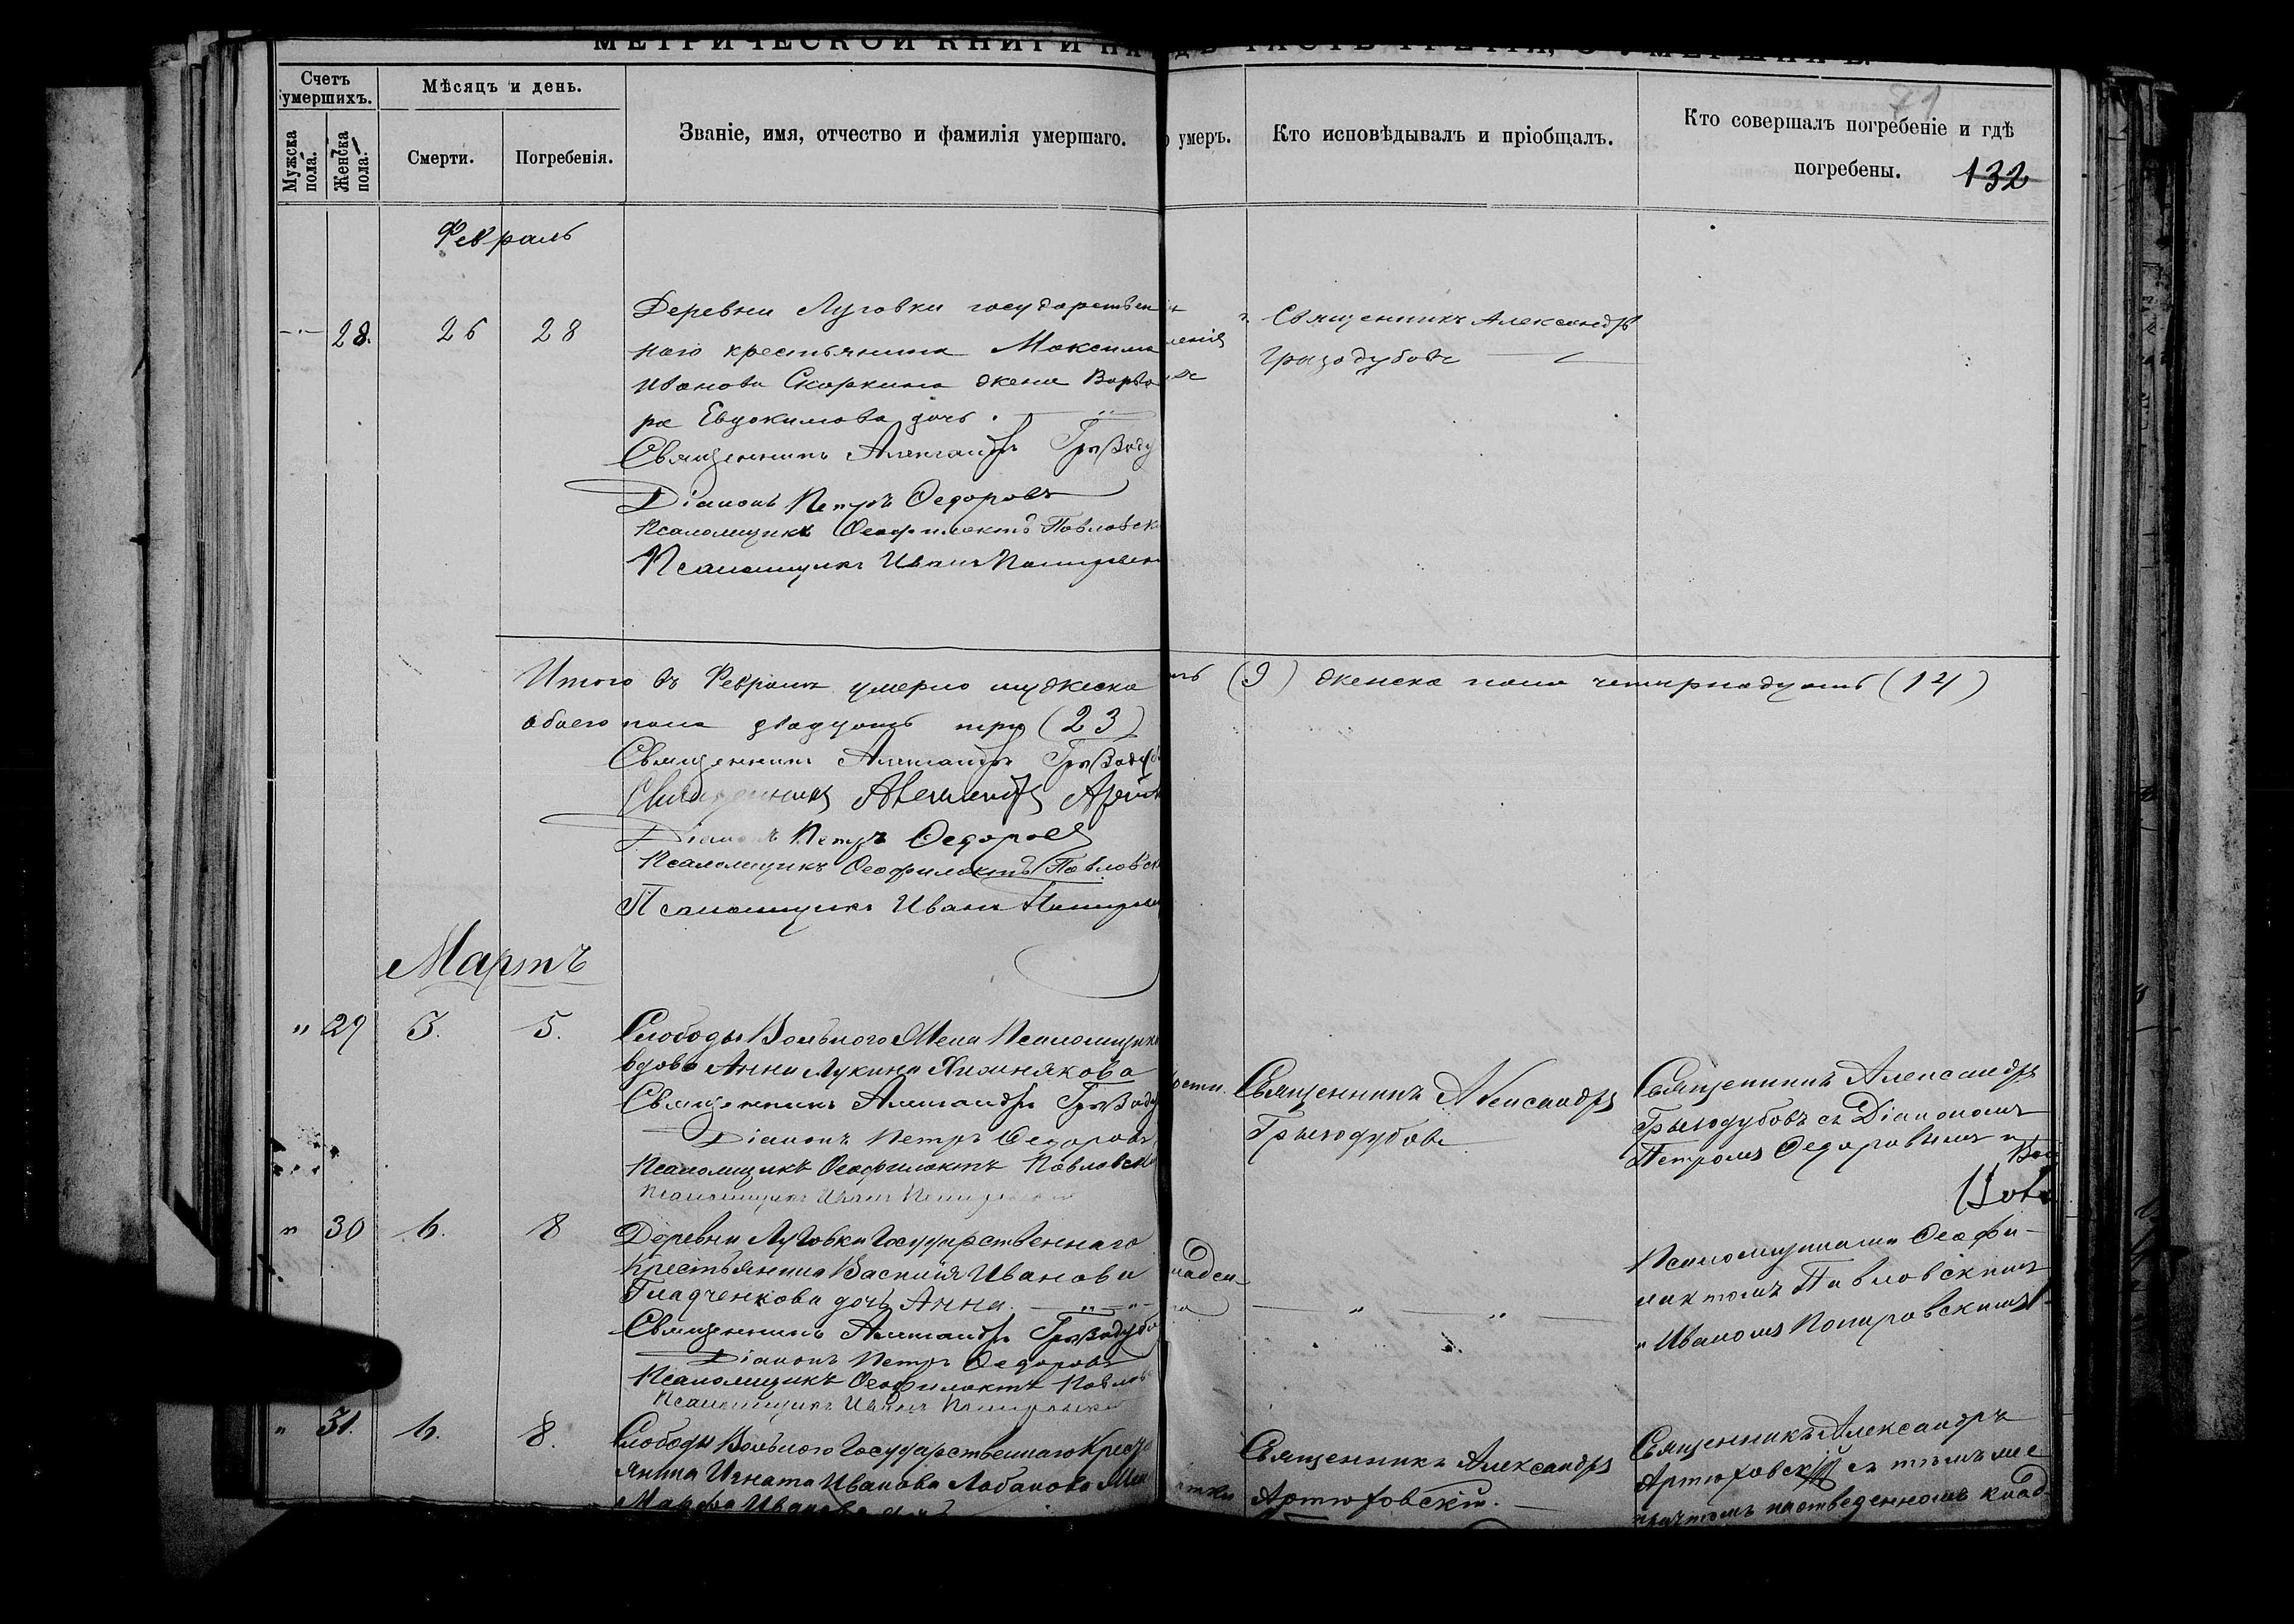 МЕТРИЧЕСКОЙ КНИГИ НА
ЧАСТЬ ТРЕТІЯ, О УМЕРШИХЪ.
Счетъ умершихъ.
Мужска пола.
Женска пола.
Мѣсяцъ и день.
Смерти.
Погребенія.
Званіе, имя, отчество и фамилія умершаго.
умеръ.
Кто исповѣдывалъ и пріобщалъ.
Кто совершалъ погребеніе и гдѣ
погребены.
71
132
Февраль
28. 26 28
Деревни Луговки государствен
наго крестьянина Максима
Иванова Скоркина жена Варва
ра Евдокимова дочь.
Священникъ Александръ
Грызодубовъ
Священникъ Александръ Грызоду
Діаконъ Петръ Ѳедоровъ
Псаломщикъ Ѳеофилактъ Павловск
Псаломщикъ Иванъ
Итого въ Февралѣ умерло мужеска
ть (9) женска пола четырнадцать (14)
обоего пола двадцать три (23)
Священникъ Александръ Грызодуб
Священникъ Александръ
Діаконъ Петръ Ѳедоровъ
Псаломщикъ Ѳеофилактъ Павловск
Псаломщикъ Иванъ
Мартъ
" 29 3. 5.
Слободы Вольного Псаломщика
вдова Анна Лукина
Священникъ Александръ Грызоду
Діаконъ Петръ Ѳедоровъ
Псаломщикъ Ѳеофилактъ Павловск
Псаломщикъ Иванъ
Священникъ Александръ
Грызодубовъ
Священникъ Александръ
Грызодубовъ съ Діакономъ
Петромъ Ѳедоровымъ и
" 30 6. 8
Деревни Луговки Государственнаго
Крестьянина Василія Иванова
Гладченкова дочь Анна.
Священникъ Александръ Грызодубо
Діаконъ Петръ Ѳедоровъ
Псаломщикъ Ѳеофилактъ Павлов
Псаломщикъ Иванъ
Псаломщиками Ѳеофи-
лактомъ Павловскимъ
и Иваномъ
" 31. 6. 8.
Слободы Вольного Государственнаго Крест
янина Игната Иванова Лобанова
Марфа Иванова
Священникъ Александръ
Артюховскій.
Священникъ Александръ
Артюховскій съ тѣмъ же
причтомъ на отведенномъ клад-